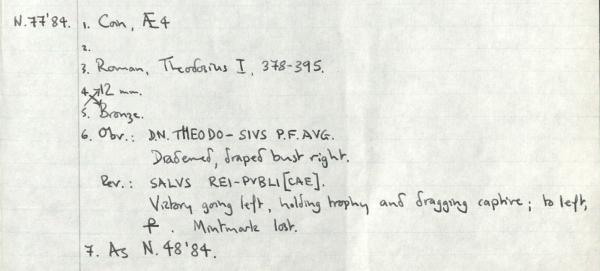 N.77'84. 1. Coin, Æ4
2.
3. Roman, Theodosius I, 378-395.
4. 12 mm.
5. Bronze.
6. Obv.: DN. THEODO-SIVS P.F. AVG.
Diademed, draped bust right.
Rev.: SALVS REI-PVBLI[CAE].
Victory going left, holding trophy and dragging captive; to left,
⳨. Mintmark lost.
7. As N.48'84.